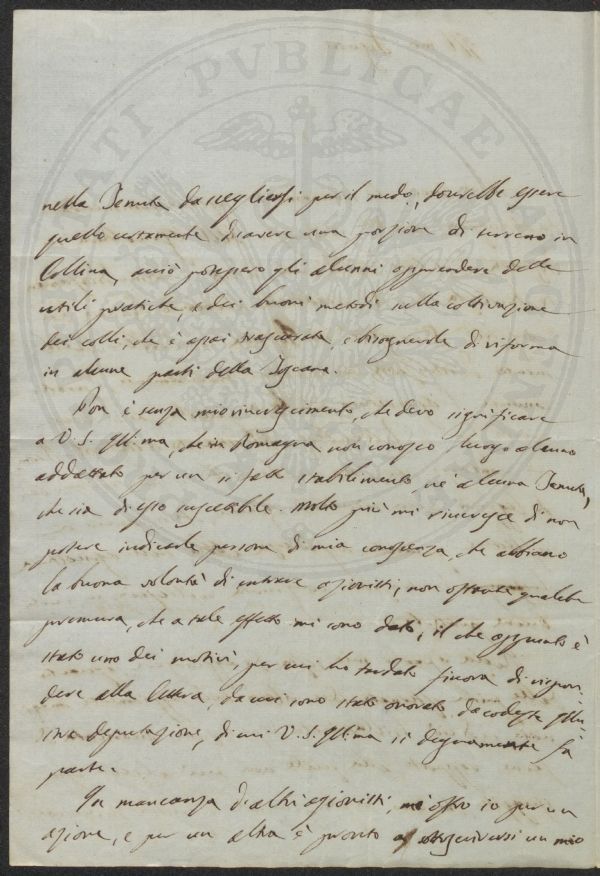 nella Tenuta da scegliersi per il medo, dourebbe essere
quello certamente di avere una porzione di terreno in
Collina, acciò potessero gli alunni apprendere delle
utili pratiche e dei buoni metodi nella coltivazione
dei colli, che è assai trascurata, e bisognevole di riforma
in alcune parti della Toscana.
Non è senza mio rincrescimento, che devo significare
a V. S. Ill:ma, che in Romagna non conosco luogo alcuno
addattato per un sì fatto stabilimento, nè alcuna Tenuta,
che sia di esso suscettibile. Molto più mi rincresce di non
potere indicarle persone di mia conoscenza, che abbiano
la buona volontà di entrare azionisti, non ostante qualche
premura, che a tale effetto mi sono dato, il che appunto è
stato uno dei motivi, per cui ho tardato finora di rispon-
dere alla lettera, da cui sono stato onorato da codesta Illu-
stre deputazione, di cui V. S. Ill:ma sì degnamente fà
parte.
In mancanza di altri azionisti, mi offro io per un
azione, e per un altra è pronto a sottoscriversi un mio
PVBLICAE